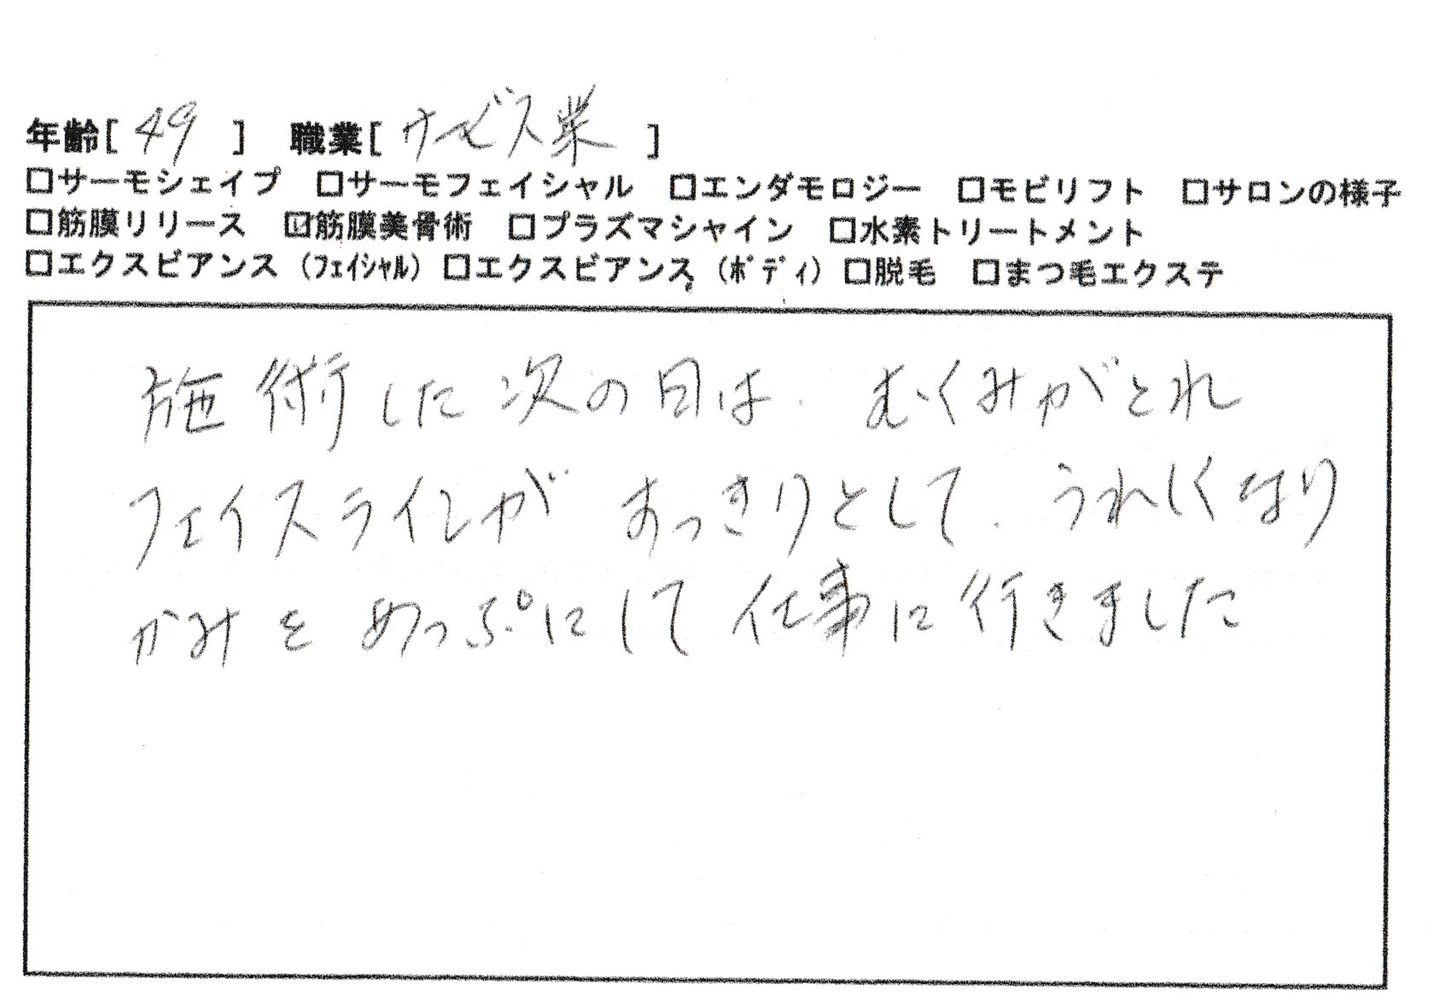 年齢[ 49 ] 職業[ サービス業 ]
□サーモシェイプ □サーモフェイシャル □エンダモロジー □モビリフト □サロンの様子
□筋膜リリース ☑筋膜美骨術 □プラズマシャイン □水素トリートメント
□エクスビアンス（フェイシャル）□エクスビアンス（ボディ）□脱毛 □まつ毛エクステ
施術した次の日は、むくみがとれ
フェイスラインがすっきりとして、うれしくなり
かみをあっぷにして仕事に行きました